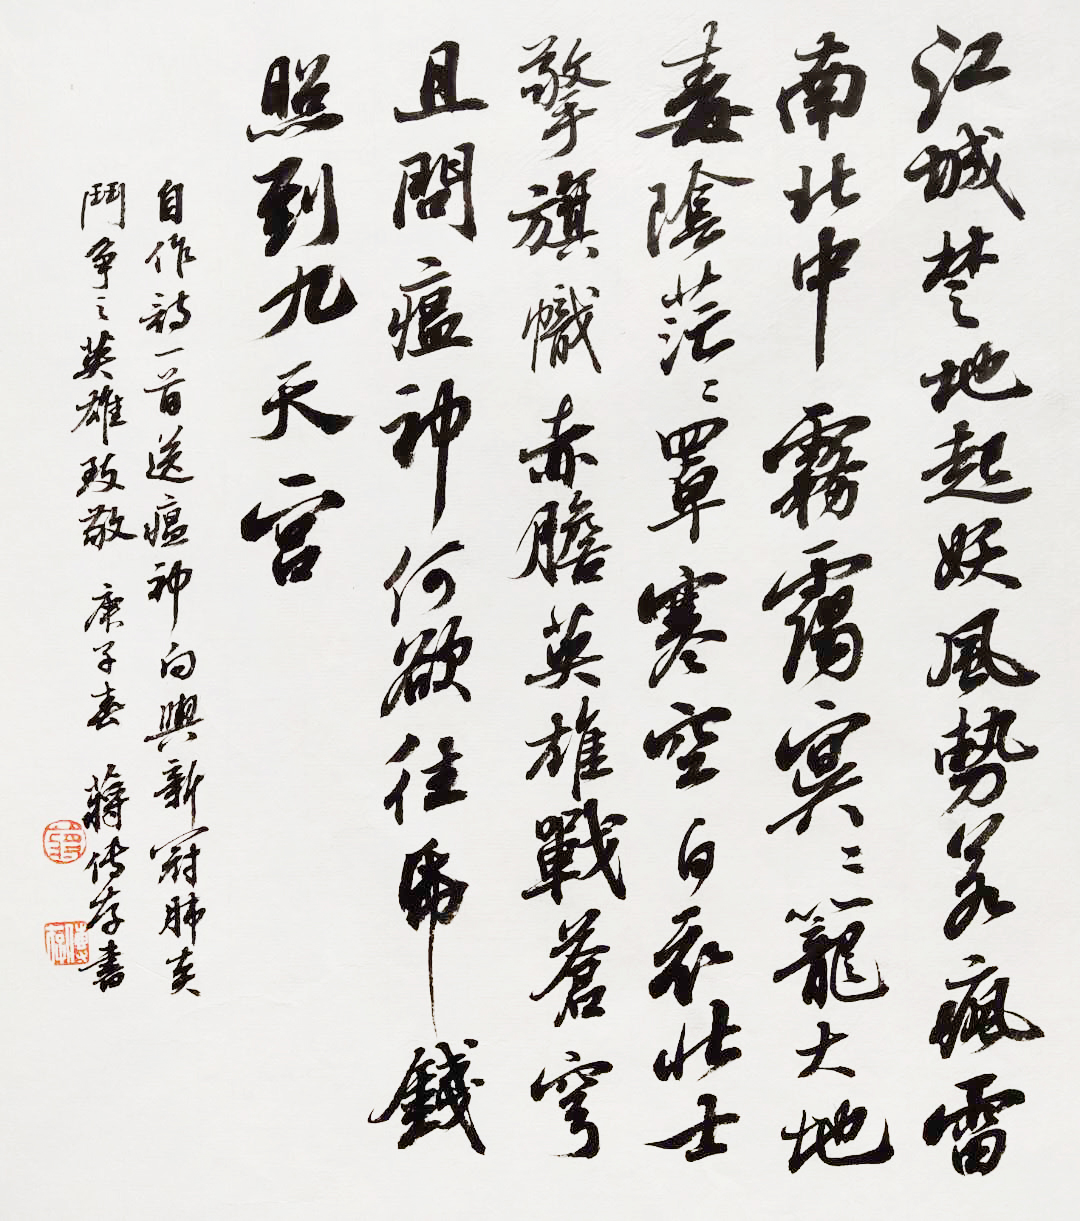 江城楚地起妖風勢若瘋雷
南北中霧靄冥〻籠大地
毒陰茫〻罩寒空白衣壯士
擎旗幟赤膽英雄戰蒼穹
且問瘟神何欲往帋錢
照到九天宮
自作詩一首送瘟神向與新冠肺炎
鬥争之英雄致敬 庚子春 蔣传存書